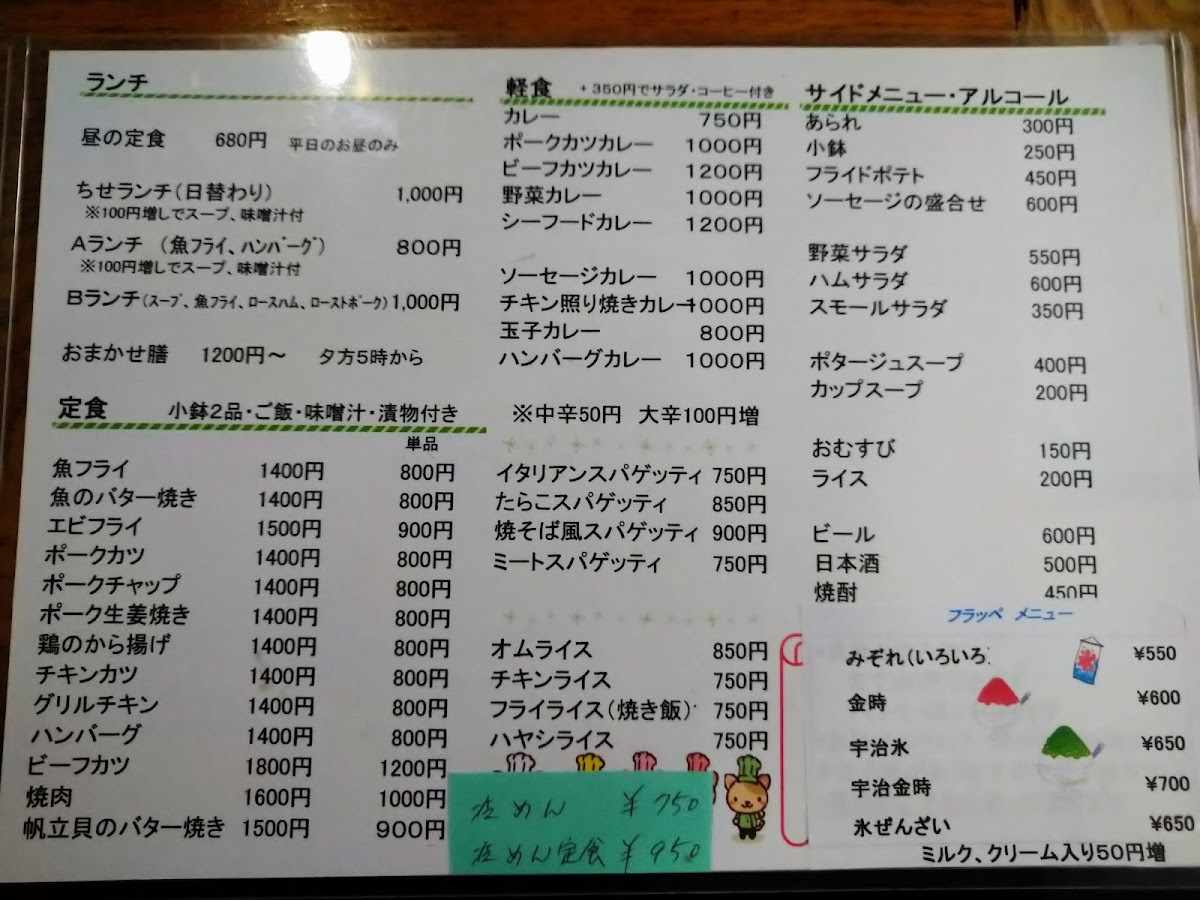 ランチ
昼の定食 680円 平日のお昼のみ
ちせランチ(日替わり) 1,000円
※100円増しでスープ、味噌汁付
Aランチ (魚フライ、ハンバーグ) 800円
※100円増しでスープ、味噌汁付
Bランチ(スープ、魚フライ、ロースハム、ローストポーク) 1,000円
おまかせ膳 1200円〜 夕方5時から
定食 小鉢2品・ご飯・味噌汁・漬物付き
単品
魚フライ 1400円 800円
魚のバター焼き 1400円 800円
エビフライ 1500円 900円
ポークカツ 1400円 800円
ポークチャップ 1400円 800円
ポーク生姜焼き 1400円 800円
鶏のから揚げ 1400円 800円
チキンカツ 1400円 800円
グリルチキン 1400円 800円
ハンバーグ 1400円 800円
ビーフカツ 1800円 1200円
焼肉 1600円 1000円
帆立貝のバター焼き 1500円 900円
軽食 +350円でサラダ・コーヒー付き
カレー 750円
ポークカツカレー 1000円
ビーフカツカレー 1200円
野菜カレー 1000円
シーフードカレー 1200円
ソーセージカレー 1000円
チキン照り焼きカレー 1000円
玉子カレー 800円
ハンバーグカレー 1000円
※中辛50円 大辛100円増
イタリアンスパゲッティ 750円
たらこスパゲッティ 850円
焼そば風スパゲッティ 900円
ミートスパゲティ 750円
オムライス 850円
チキンライス 750円
フライライス(焼き飯) 750円
ハヤシライス 750円
冷めん ¥750
冷めん定食 ¥950
サイドメニュー・アルコール
あられ 300円
小鉢 250円
フライドポテト 450円
ソーセージの盛合せ 600円
野菜サラダ 550円
ハムサラダ 600円
スモールサラダ 350円
ポタージュスープ 400円
カップスープ 200円
おむすび 150円
ライス 200円
ビール 600円
日本酒 500円
焼酎 450円
フラッペ メニュー
みぞれ(いろいろ) ¥550
金時 ¥600
宇治氷 ¥650
宇治金時 ¥700
氷ぜんざい ¥650
ミルク、クリーム入り50円増